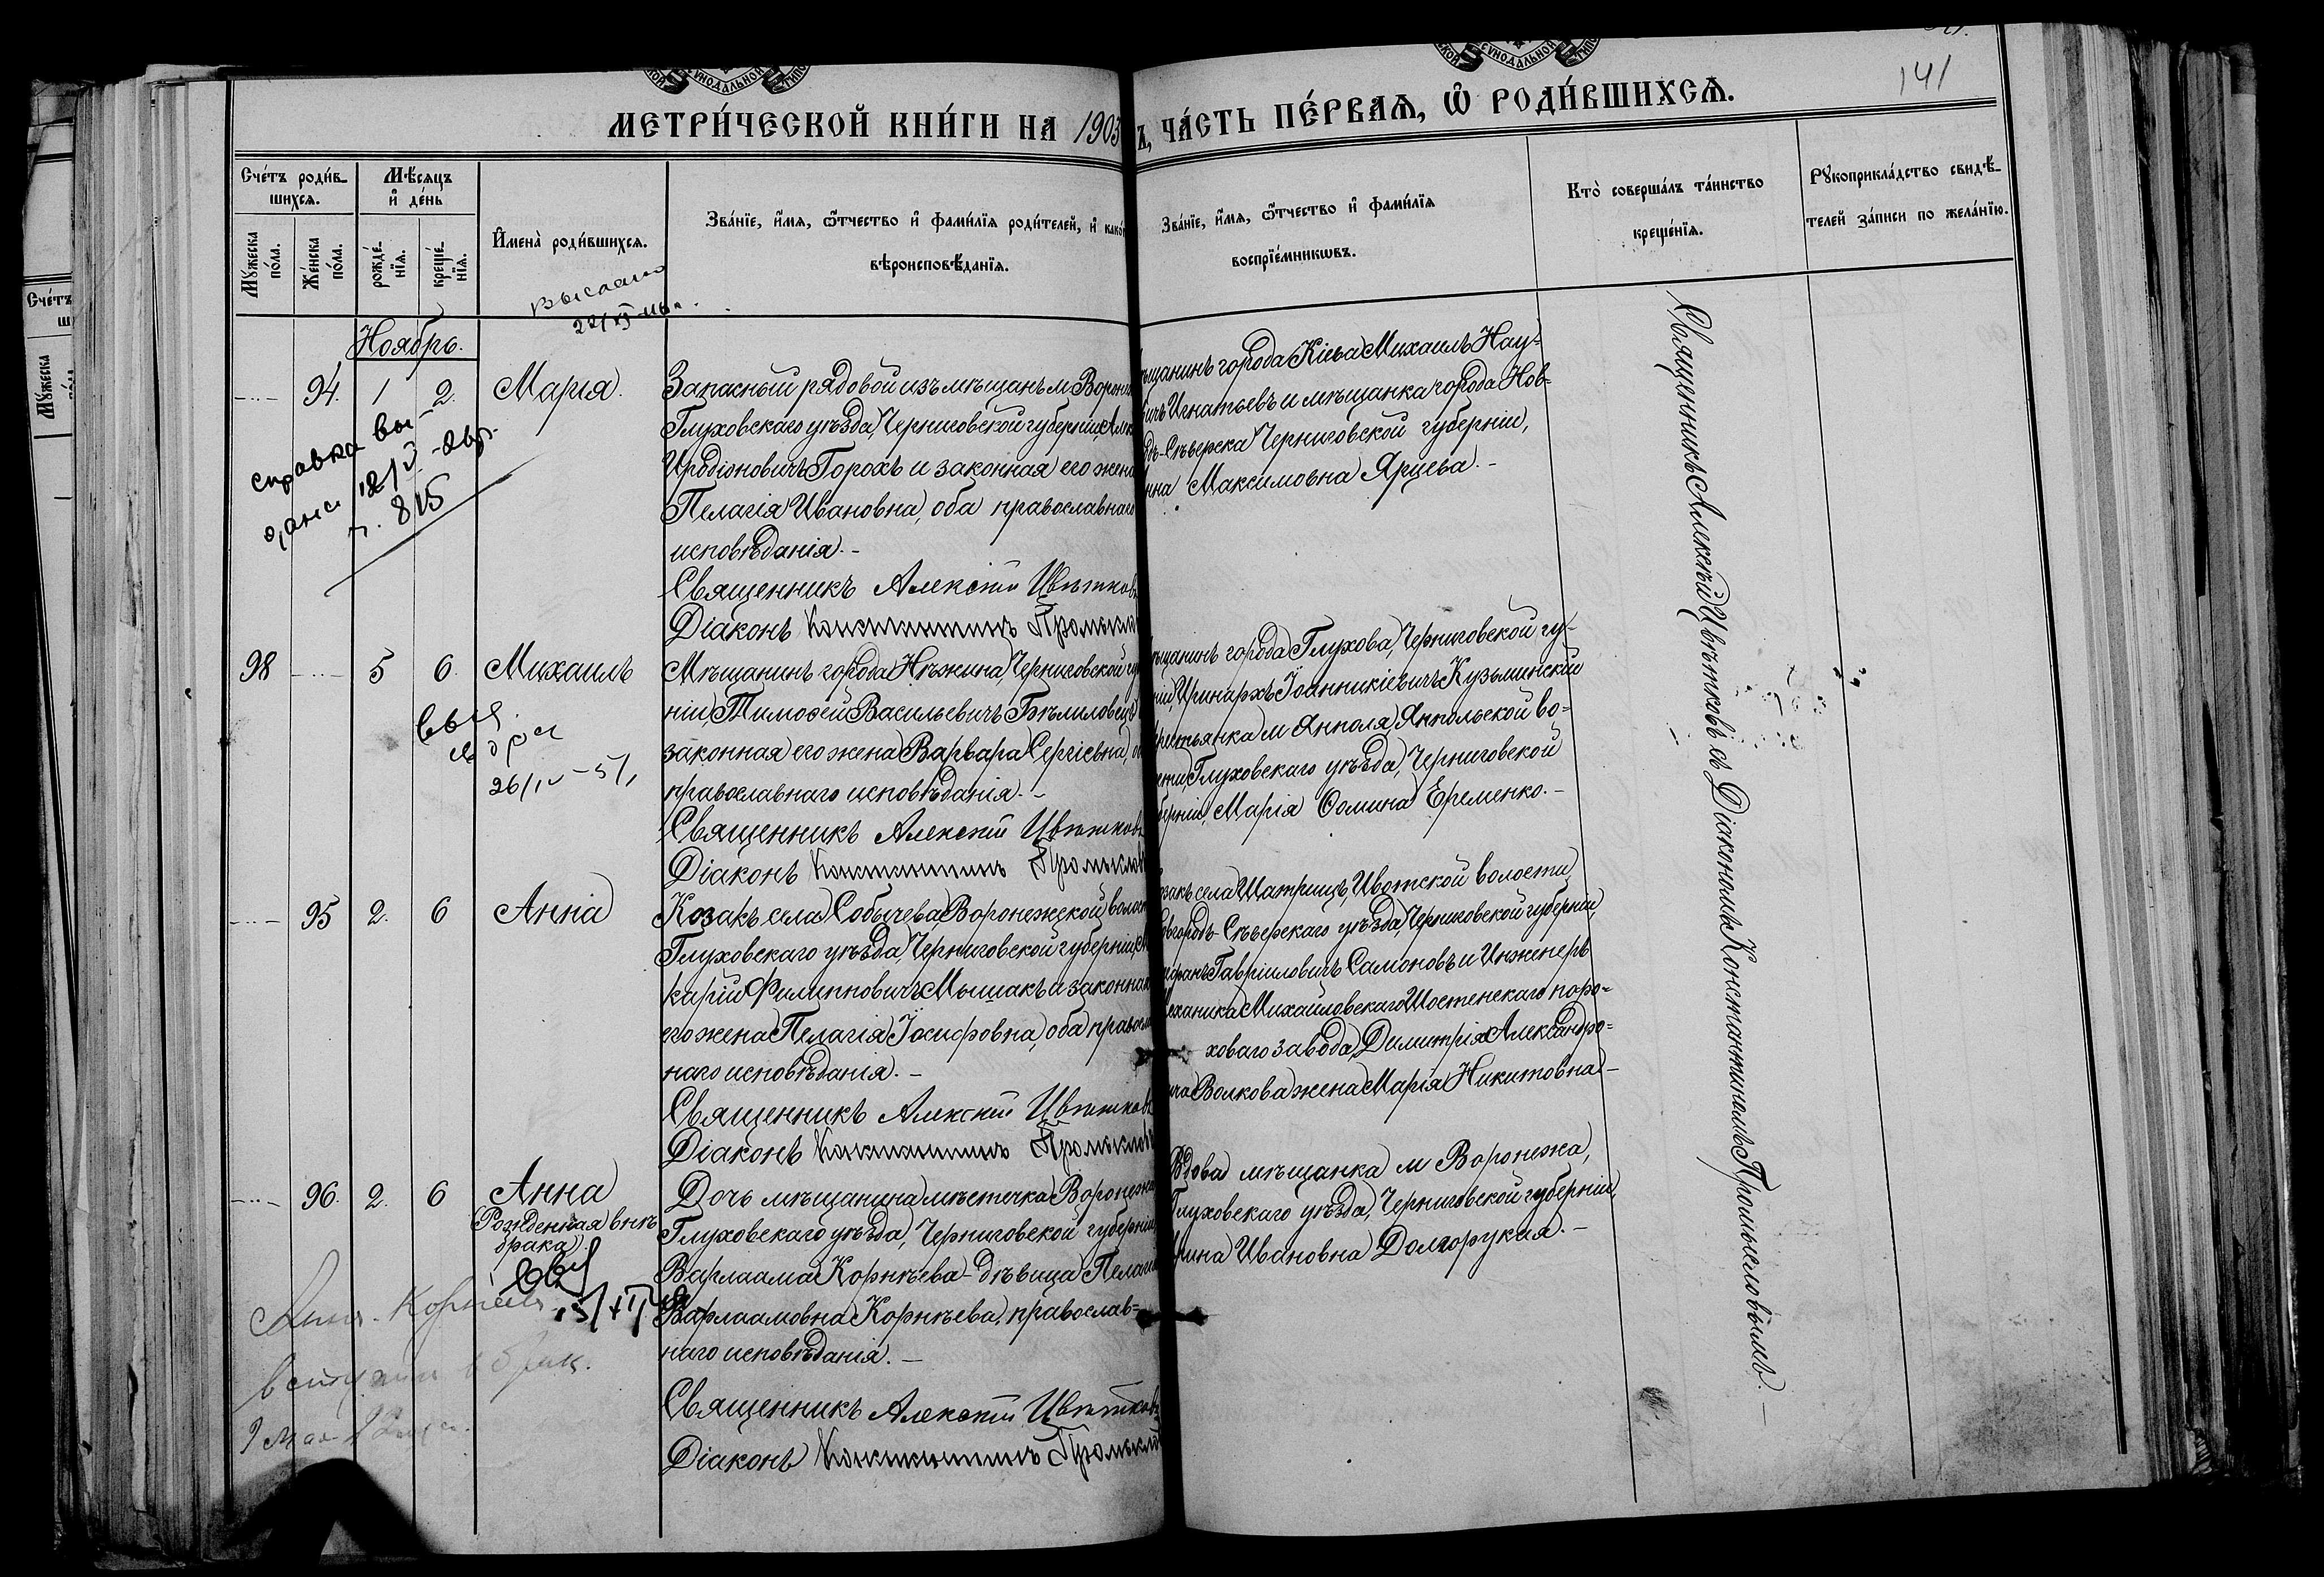 МЕТРИ́ЧЕСКОЙ КНИ́ГИ НА 1903
ЧА́СТЬ ПЕ́РВАѦ, Ѽ РОДИ́ВШИХСѦ.
141
Сче́тъ роди́в-
шихсѧ.
Мꙋ́жеска
по́ла.
Же́нска
по́ла.
Мѣ́сѧцъ
и҆ де́нь
рожде́-
нїѧ.
креще́-
нїѧ.
И҆мена̀ роди́вшихсѧ.
Зва́нїе, и҆́мѧ, ѻ҆́тчество и҆ фами́лїѧ роди́телей, и҆ како́
вѣроисповѣ́данїѧ.
Зва́нїе, и҆́мѧ, ѻ҆́тчество и҆ фами́лїѧ
воспрїе́мникѡвъ.
Кто̀ соверша́лъ та́инство
креще́нїѧ.
Рꙋкоприкла́дство свидѣ́-
телей за́писи по жела́нїю.
Выслано
Ноябрь.
94. 1 2. Марія.
Запасный рядовой изъ мѣщанъ м. Воронеж
Глуховскаго уѣзда, Черниговской губерніи, Але
Иродіоновичъ Горохъ и законная его жена
Пелагія Ивановна, оба православнаго
исповѣданія.-
Священникъ Алексій Цвѣтковъ
Діаконъ Константинъ Промысло
ѣщанинъ города Кіева Михаилъ Нау-
ичъ Игнатьевъ и мѣщанка города Нов-
дъ-Сѣверска Черниговской губерніи,
нна Максимовна Ярцева.-
справка вы-
дана 12/V
815
98 5 6. Михаилъ
Мѣщанинъ города Нѣжина, Черниговской гу
ніи Тимоѳей Васильевичъ Бѣлиловецъ
законная его жена Варвара Сергіевна, о
православнаго исповѣданія.-
Священникъ Алексій Цвѣтковъ
Діаконъ Константинъ Промыслов
ѣщанинъ города Глухова, Черниговской гу-
ніи Иринархъ Іоанникіевичъ Кузьминскій
рестьянка м. Янполя, Янпольской во-
сти, Глуховскаго уѣзда, Черниговской
берніи, Марія Ѳомина Еременко.-
26/IV-51
95 2. 6 Анна
Козакъ села Собычева, Воронежской волост
Глуховскаго уѣзда, Черниговской губерніи,
карій Филипповичъ Мышакъ и законная
его жена Пелагія Іосифовна, оба правосл
наго исповѣданія.-
Священникъ Алексій Цвѣтковъ
Діаконъ Константинъ Промыслов
закъ села Шатрищъ, Ивотской волости,
овгородъ-Сѣверскаго уѣзда, Черниговской губерніи,
Гавріиловичъ Самоновъ и Инженеръ
еханика Михайловскаго Шостенскаго поро-
ховаго завода, Димитрія Александро-
ича Волкова жена Марія Никитовна.-
96. 2. 6 Анна
(Рожденная внѣ
брака).
Дочь мѣщанина мѣстечка Воронежа
Глуховскаго уѣзда, Черниговской губерніи
Варлаама Корнѣева - дѣвица Пелагія
Варлаамовна Корнѣева, православ-
наго исповѣданія.-
Священникъ Алексій Цвѣтковъ
Діаконъ Константинъ Промыслов
Вдова мѣщанка м. Воронежа,
Глуховскаго уѣзда, Черниговской губерніи,
рина Ивановна Долгорукая.-
Священникъ Алексѣй Цвѣтковъ съ Діакономъ Константиномъ Промысловымъ.-